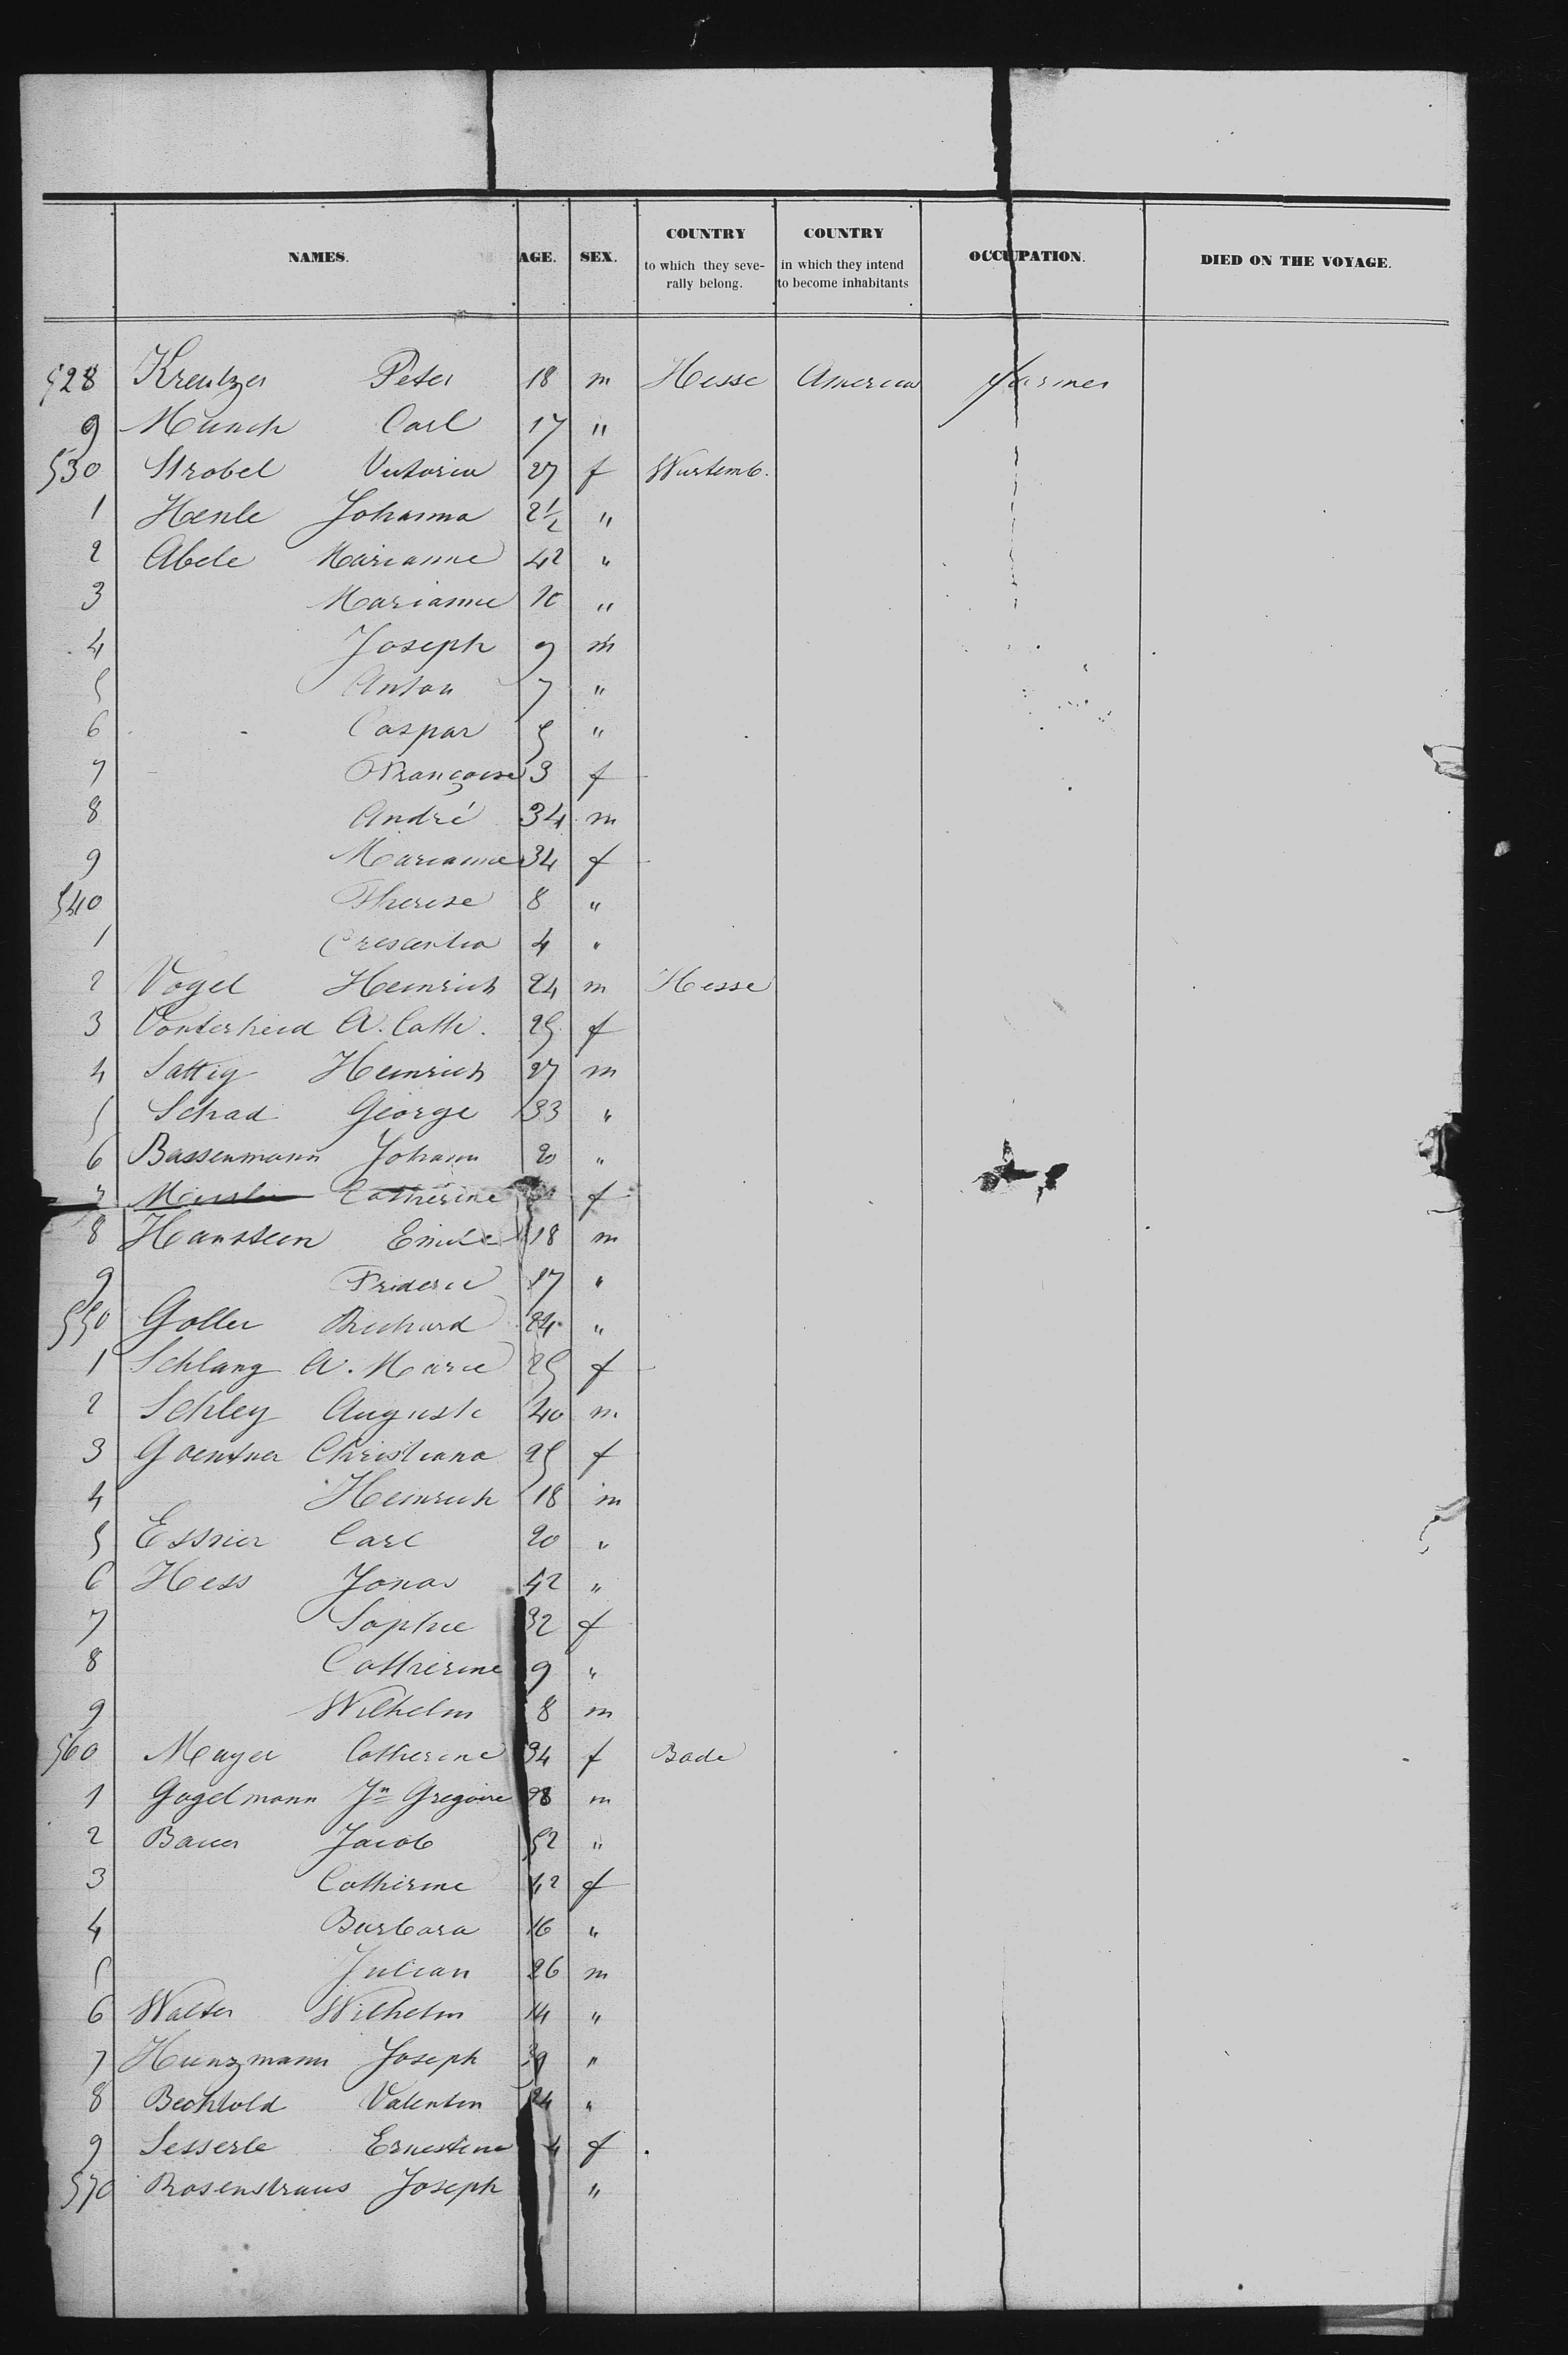 NAMES. AGE. SEX. COUNTRY to which they seve-rally belong. COUNTRY in which they intend to become inhabitants OCCUPATION. DIED ON THE VOYAGE.
528 Kreutzer Peter 18 m Hesse America farmer
9 Munch Carl 17 "
530 Strobel Victoria 27 f Wurtemb.
1 Henle Johanna 2½ "
2 Abele Marianne 42 "
3 Marianne 10 "
4 Joseph 9 m
5 Anton 7 "
6 Caspar 5 "
7 Françoise 3 f
8 André 34 m
9 Marianne 34 f
540 Therese 8 "
1 Crescentia 4 "
2 Vogel Heinrich 24 m Hesse
3 Vonderheid A. Cath. 25 f
4 Sattig Heinrich 27 m
5 Schad George 33 "
6 Bassenmann Johann 20 "
7 Catherine f
8 Hanstein Emile 18 m
9 Frideric 17 "
550 Goller Richard 24 "
1 Schlang A. Marie 25 f
2 Schley Auguste 40 m
3 Goentner Christiana 25 f
4 Heinrich 18 m
5 Essner Carl 20 "
6 Hess Jonas 42 "
7 Sophie 32 f
8 Catherine 9 "
9 Wilhelm 8 m
560 Mayer Catherine 34 f Bade
1 Gogelmann Jn Gregoire 28 m
2 Bauer Jacob 52 "
3 Catherine 42 f
4 Barbara 16 "
5 Julian 26 m
6 Walter Wilhelm 14 "
7 Hunzmann Joseph 39 "
8 Bechtold Valentin 24 "
9 Sesserle Ernestine 4 f
570 Rosenstraus Joseph "